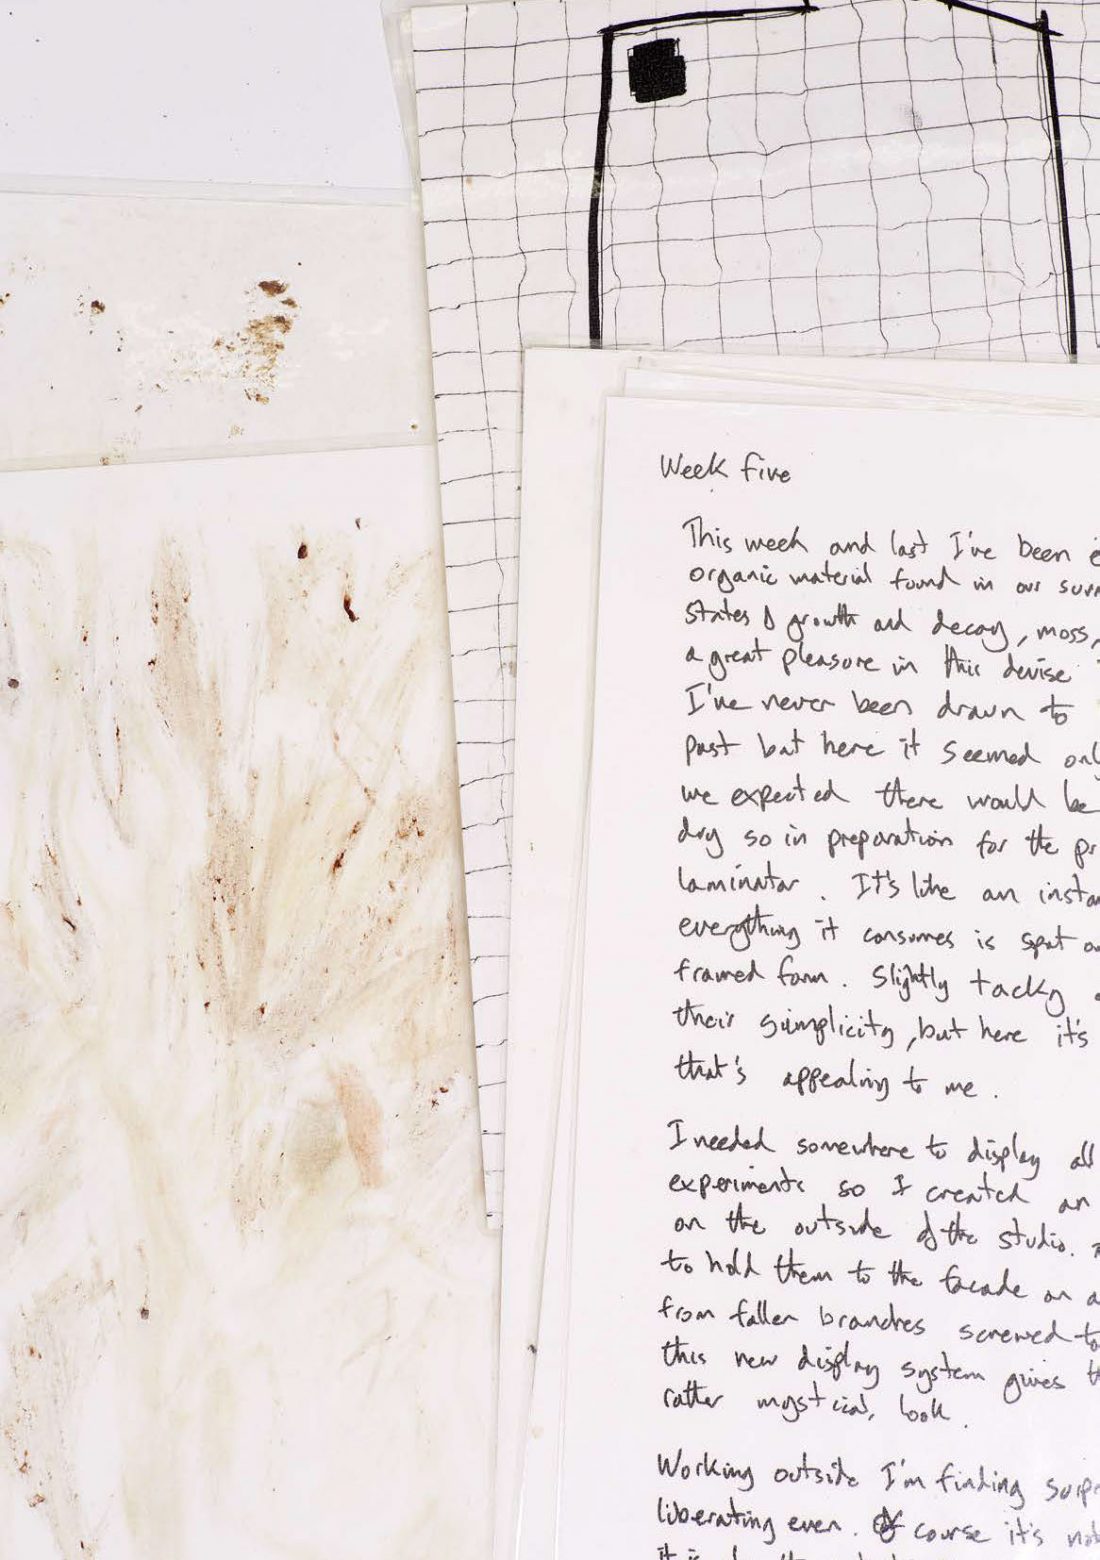 Week five
This week and last I've been
organic material found in our
states of growth and decay, moss,
a great pleasure in this devise
I've never been drawn to
past but here it seemed
we expected there would be
dry so in preparation for the
laminator. It's like an
everything it consumes is spat
framed form. Slightly tacky
their simplicity, but here it's
that's appealing to me.
I needed somewhere to display all
experiments so I created an
on the outside of the studio.
to hold them to the facade on
from fallen branches screwed to
this new display system gives
rather mystical, look.
Working outside I'm finding
liberating even. Of course it's
it is